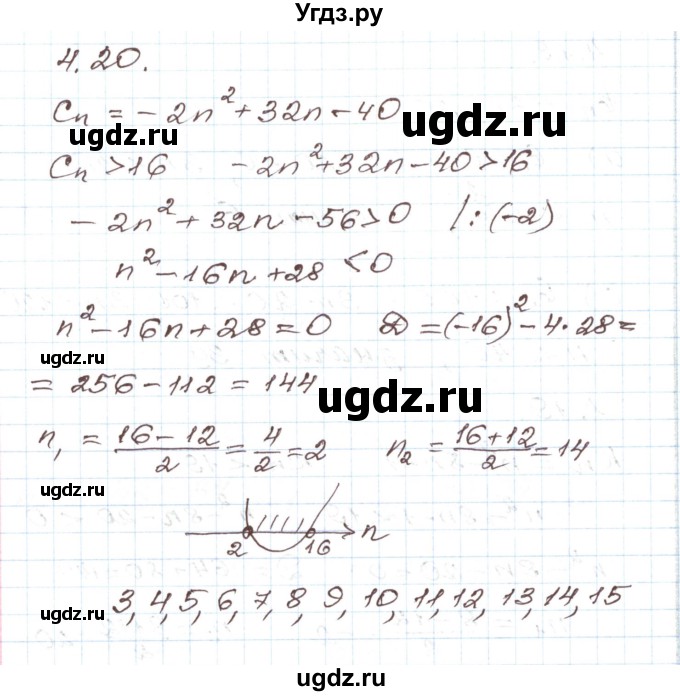 Угдз.ру
4.20.
Cₙ = -2n² + 32n - 40
ugdz.ru
ugdz.ru
Cₙ > 16 -2n² + 32n - 40 > 16
-2n² + 32n - 56 > 0 /:(-2)
n² - 16n + 28 < 0
n² - 16n + 28 = 0 D = (-16)² - 4·28 =
ugdz.ru
= 256 - 112 = 144
ugdz.ru
n₁ = (16-12)/2 = 4/2 = 2 n₂ = (16+12)/2 = 14
ugdz.ru
2 16 n
3, 4, 5, 6, 7, 8, 9, 10, 11, 12, 13, 14, 15
ugdz.ru
ugdz.ru